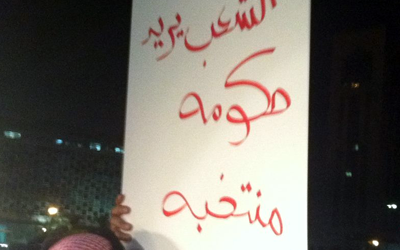 الشعب يريد
حكومه
منتخبه